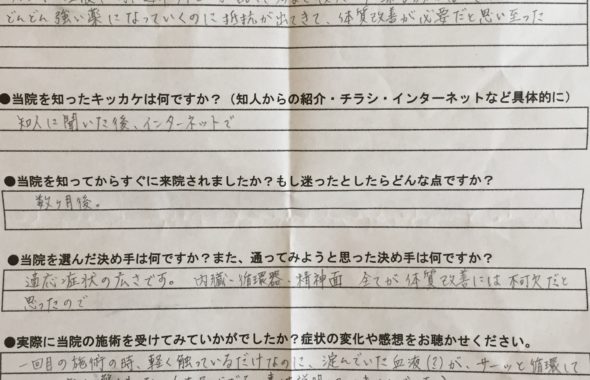 どんどん強い薬になっていくのに抵抗が出てきて、体質改善が必要だと思い至った
●当院を知ったキッカケは何ですか？（知人からの紹介・チラシ・インターネットなど具体的に）
知人に聞いた後、インターネットで
●当院を知ってからすぐに来院されましたか？もし迷ったとしたらどんな点ですか？
数ヶ月後。
●当院を選んだ決め手は何ですか？また、通ってみようと思った決め手は何ですか？
適応症状の広さです。内臓・循環器・精神面 全てが体質改善には不可欠だと
思ったので
●実際に当院の施術を受けてみていかがでしたか？症状の変化や感想をお聴かせください。
一回目の施術の時、軽く触っているだけなのに、淀んでいた血液(?)が、サーッと循環して